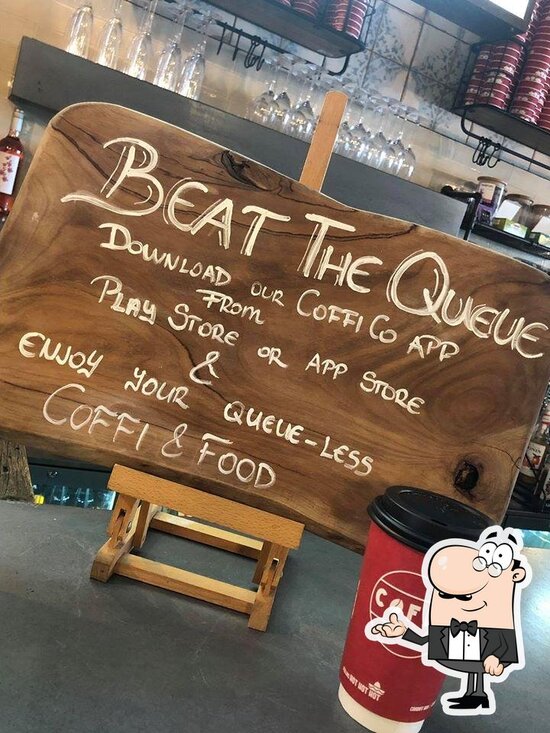 BEAT THE QUEUE
DOWNLOAD OUR COFFI CO APP
FROM
PLAY STORE OR APP STORE
&
ENJOY YOUR QUEUE-LESS
COFFI & FOOD
COFF
HOT HOT HOT